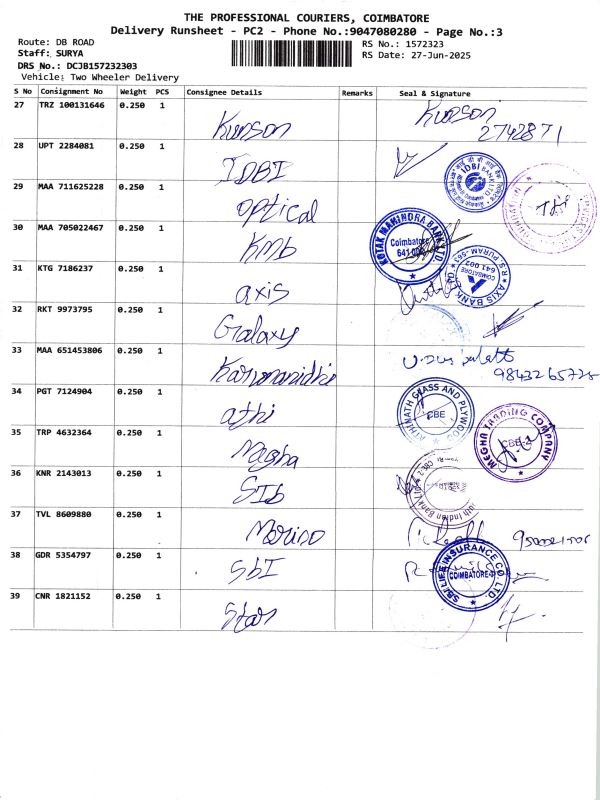 THE PROFESSIONAL COURIERS, COIMBATORE
Delivery Runsheet - PC2 - Phone No.:9047080280 - Page No.:3
Route: DB ROAD
RS No.: 1572323
Staff: SURYA
RS Date: 27-Jun-2025
DRS No.: DCJB157232303
Vehicle: Two Wheeler Delivery
S No Consignment No Weight PCS Consignee Details Remarks Seal & Signature
27 TRZ 100131646 0.250 1 Kurson Kurson
2742871
28 UPT 2284081 0.250 1 IDBI
IDBI BANK LTD
29 MAA 711625228 0.250 1 optical
30 MAA 705022467 0.250 1 Kmb
KOTAK MAHINDRA BANK LTD
Coimbatore
641 002
31 KTG 7186237 0.250 1 axis
AXIS BANK LTD
R S PURAM
COIMBATORE
641 002
32 RKT 9973795 0.250 1 Galaxy
33 MAA 651453806 0.250 1 Karunanidhi
34 PGT 7124904 0.250 1 athi
ATHINATH GLASS AND PLYWOODS
CBE
35 TRP 4632364 0.250 1 Megha
MEGHA TRADING COMPANY
CBE-2
36 KNR 2143013 0.250 1 SIb
South Indian Bank Ltd
37 TVL 8609880 0.250 1
38 GDR 5354797 0.250 1 SbI
SBI LIFE INSURANCE CO. LTD
COIMBATORE
39 CNR 1821152 0.250 1 Star